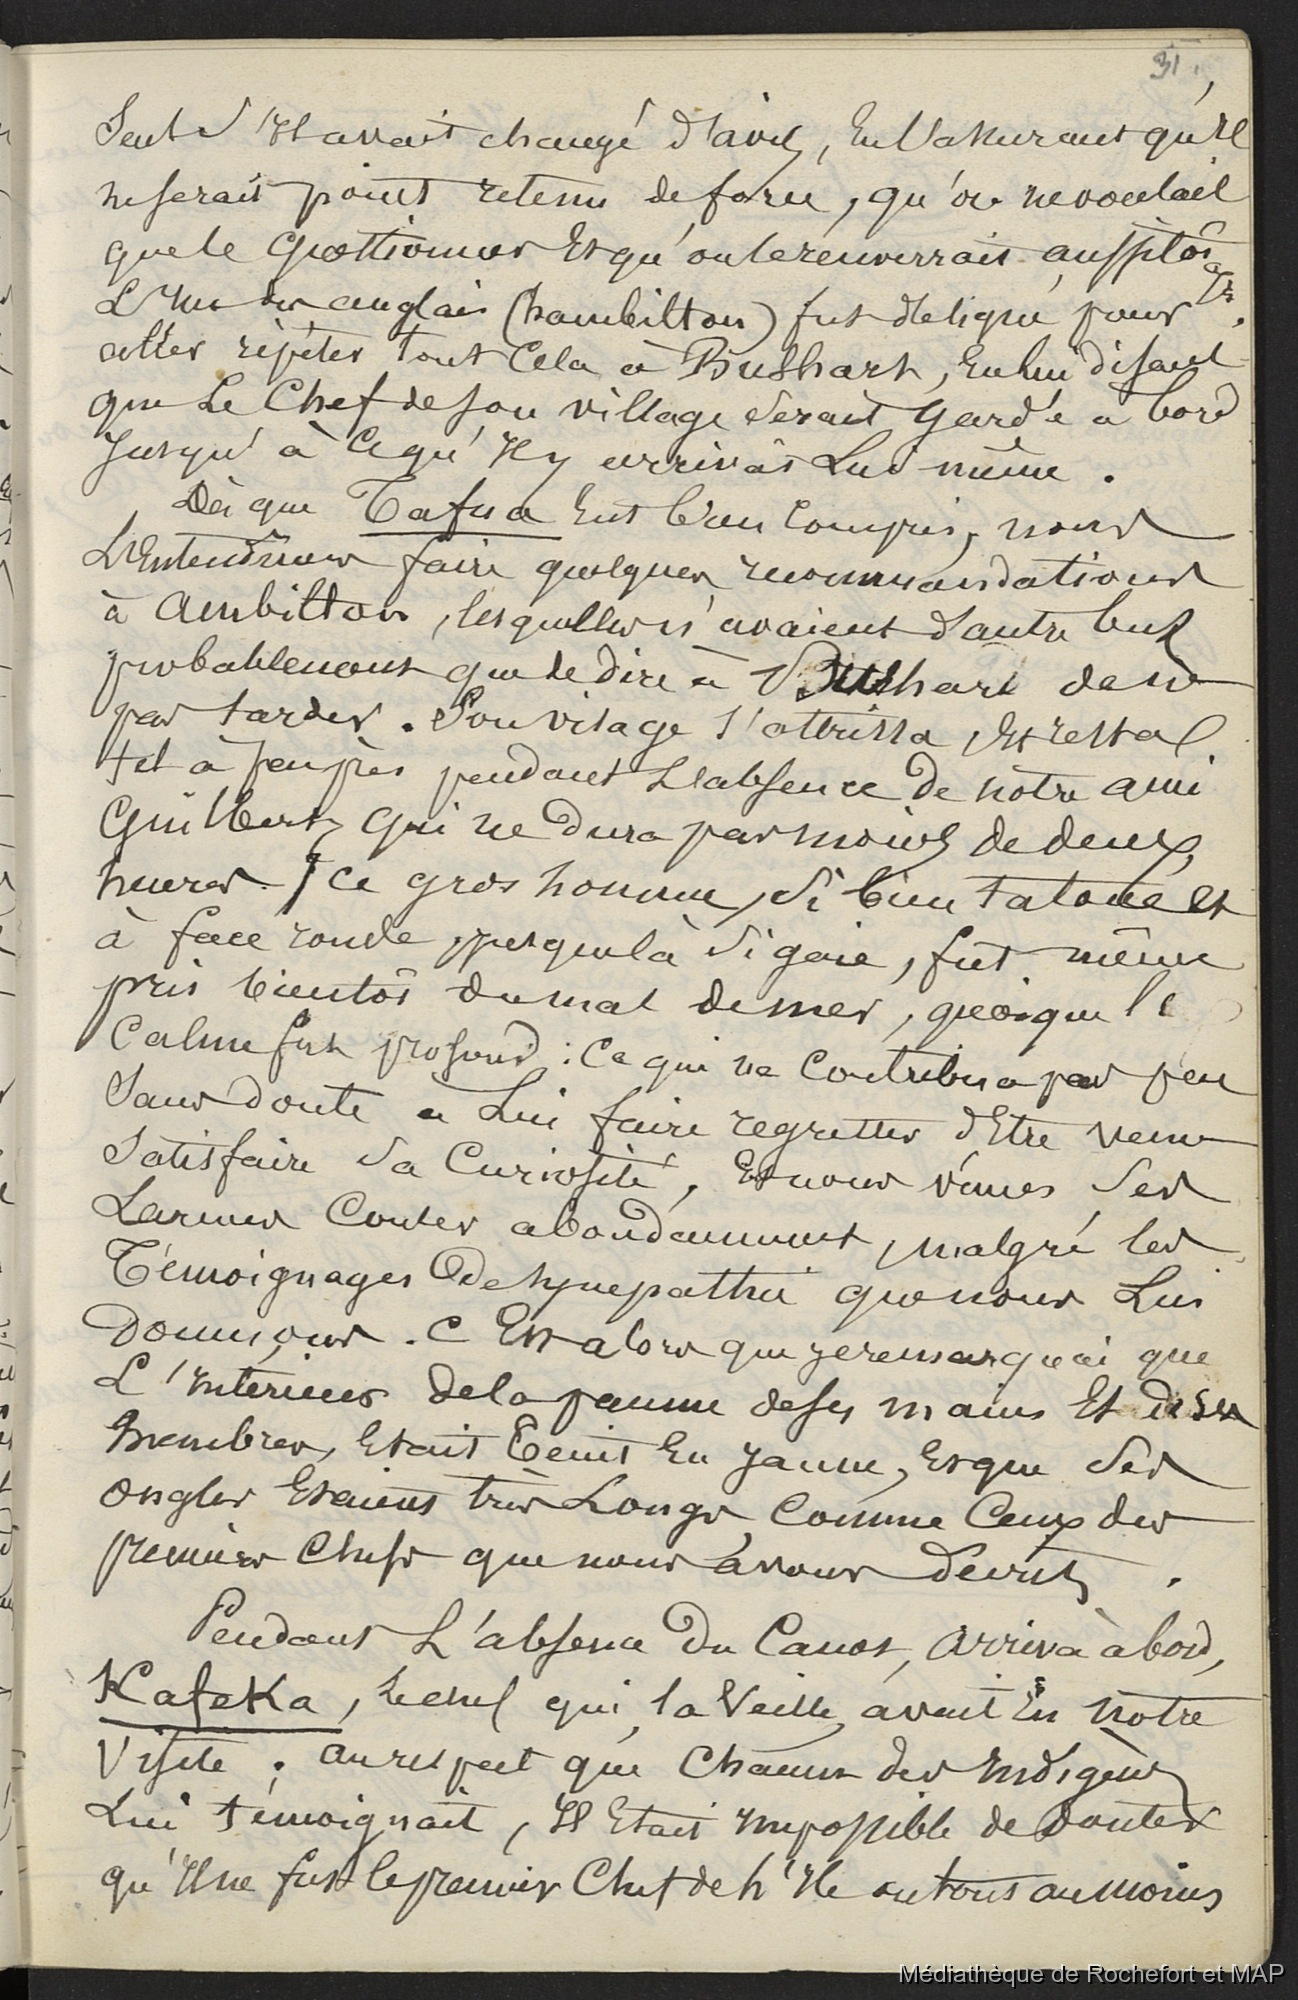 31.
Seul s'Il avait changé d'avis, En l'assurant qu'Il
ne serait point retenu de force, qu'on ne voulait
que le questionner Et qu'on le renverrait aussitôt après.
L'un des anglais (hambilton) fut délégué pour
aller répéter tout Cela à Bushart, En lui disant
que Le Chef de son village serait gardé à bord
jusqu'à Ce qu'Il y arrivât Lui même.
Dès que Tafua Eut bien compris, nous
L'Entendîmes faire quelques recommandations
à Ambilton, lesquelles n'avaient d'autre but
probablement que de dire à Bushart de ne
pas tarder. Son visage s'attrista, Et resta
tel à peu près pendant L'absence de nôtre ami
Guilbert, qui ne dura pas moins de deux
heures. Ce gros homme, si bien tatoué et
à face ronde, jusque là si gaie, fut même
pris bientôt du mal de mer, quoique le
Calme fut profond : Ce qui ne Contribua pas peu
Sans doute à Lui faire regretter d'Etre venu
Satisfaire sa Curiosité, Et nous vîmes ses
Larmes Couler abondamment, malgré les
Témoignages de sympathie que nous Lui
Donnions. C'Est alors que je remarquai que
L'Intérieur de la paume de ses mains Et de ses
membres, Etait teint En jaune, Et que ses
ongles Etaient très Longs, Comme Ceux des
premiers Chefs que nous avons décrits.
Pendant L'absence du Canot, arriva à bord,
Kafeka, le chef qui, la Veille, avait Eu nôtre
Visite. Au respect que Chacun des Indigènes
Lui témoignait, Il Etait Impossible de douter
qu'Il ne fut le premier Chef de L'Ile ou tout au moins
Médiathèque de Rochefort et MAP